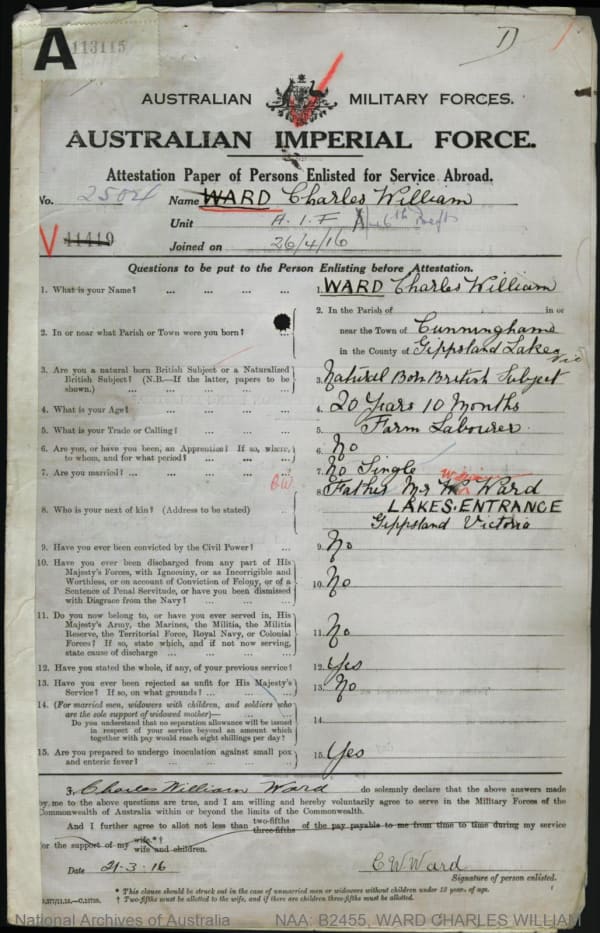 A 113115
AUSTRALIAN MILITARY FORCES.
AUSTRALIAN IMPERIAL FORCE.
Attestation Paper of Persons Enlisted for Service Abroad.
No. 2504 Name WARD Charles William
Unit A.I.F 6th Refts
V 11419 Joined on 26/4/16
Questions to be put to the Person Enlisting before Attestation.
1. What is your Name? ... ... ... ... 1. WARD Charles William
2. In the Parish of in or
2. In or near what Parish or Town were you born? near the Town of Cunninghame
in the County of Gippsland Lakes Vic
3. Are you a natural born British Subject or a Naturalized
British Subject? (N.B.—If the latter, papers to be
shown.) 3. Natural Born British Subject
4. What is your Age? 4. 20 Years 10 Months
5. What is your Trade or Calling? 5. Farm Labourer
6. Are you, or have you been, an Apprentice? If so, where,
to whom, and for what period? 6. No
7. Are you married? 7. No Single
8. Father Mr Ward
8. Who is your next of kin? (Address to be stated) LAKES ENTRANCE
Gippsland Victoria
9. Have you ever been convicted by the Civil Power? 9. No
10. Have you ever been discharged from any part of His
Majesty's Forces, with Ignominy, or as Incorrigible and
Worthless, or on account of Conviction of Felony, or of a
Sentence of Penal Servitude, or have you been dismissed
with Disgrace from the Navy? 10. No
11. Do you now belong to, or have you ever served in, His
Majesty's Army, the Marines, the Militia, the Militia
Reserve, the Territorial Force, Royal Navy, or Colonial
Forces? If so, state which, and if not now serving,
state cause of discharge 11. No
12. Have you stated the whole, if any, of your previous service? 12. Yes
13. Have you ever been rejected as unfit for His Majesty's
Service? If so, on what grounds? 13. No
14. (For married men, widowers with children, and soldiers who
are the sole support of widowed mother)—
Do you understand that no separation allowance will be issued
in respect of your service beyond an amount which
together with pay would reach eight shillings per day? 14.
15. Are you prepared to undergo inoculation against small pox
and enteric fever? 15. Yes
Charles William Ward do solemnly declare that the above answers made
by me to the above questions are true, and I am willing and hereby voluntarily agree to serve in the Military Forces of the
Commonwealth of Australia within or beyond the limits of the Commonwealth.
And I further agree to allot not less than two-fifths three-fifths of the pay payable to me from time to time during my service
for the support of my wife*† wife and children.
Date 21-3-16 C W Ward
Signature of person enlisted.
* This clause should be struck out in the case of unmarried men or widowers without children under 18 years of age.
† Two-fifths must be allotted to the wife, and if there are children three-fifths must be allotted.
National Archives of Australia NAA: B2455, WARD CHARLES WILLIAM